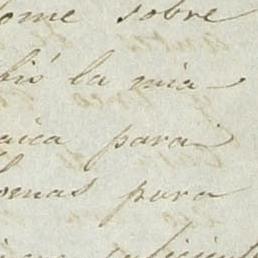 ome sobre
bió la mia
aica para
lomas para